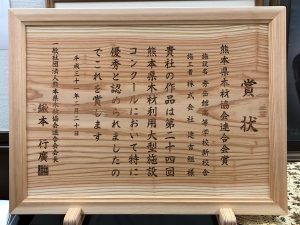 賞状
熊本県木材協会連合会賞
施設名 芳岳館高等学校新校舎
施工者 株式会社 建吉組様
貴社の作品は第二十四回
熊本県木材利用大型施設
コンクールにおいて特に
優秀と認められましたの
でこれを賞します
平成三十一年二月二十日
一般社団法人熊本県木材協会連合会会長
鍬本行廣